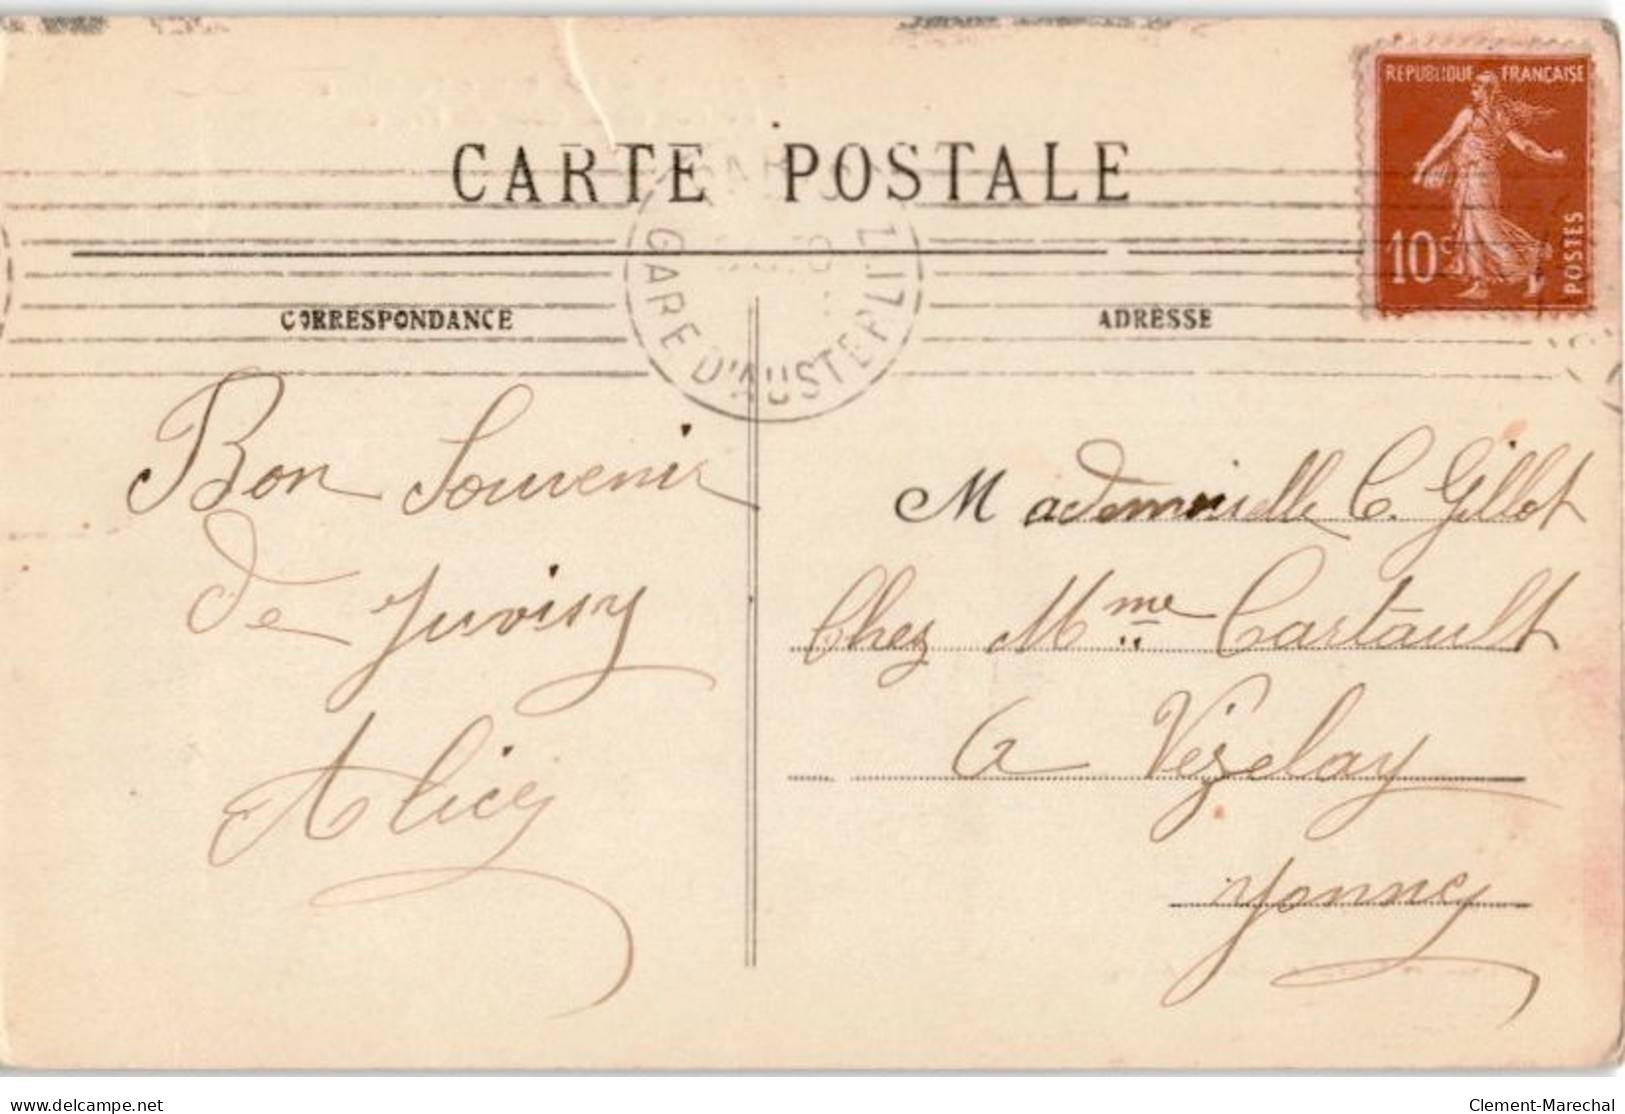 CARTE POSTALE
REPUBLIQUE FRANÇAISE
10c
POSTES
GARE D'AUSTERLITZ
CORRESPONDANCE
ADRESSE
Bon Souvenir
de Juvisy
Alice
Mademoiselle C. Gillot
Chez Mme Cartault
a Vézelay
Yonne
delcampe.net
Clement-Marechal